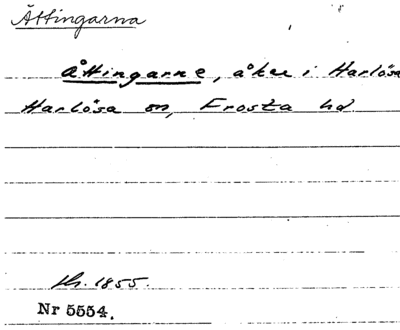 Åttingarna
Åttingarne, åker i Harlösa
Harlösa sn, Frosta hd
1855.
Nr 5554.